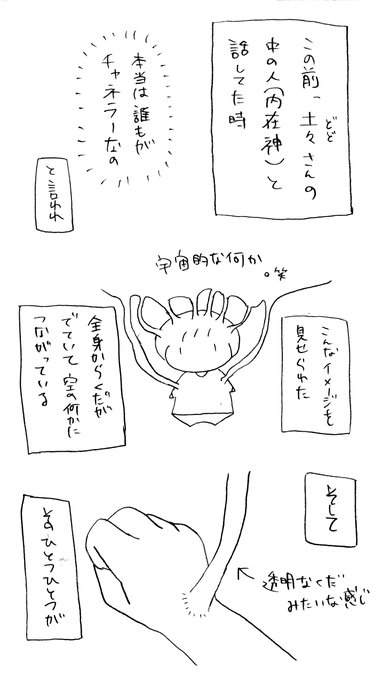 この前、土々さんの
どど
中の人(内在神)と
話してた時
本当は誰もが
チャネラーなの
と言われ
宇宙的な何か。笑
こんなイメージを
見せられた
全身からくだが
でていて空の何かに
つながっている
そして
透明なくだ
みたいな感じ
そのひとつひとつが